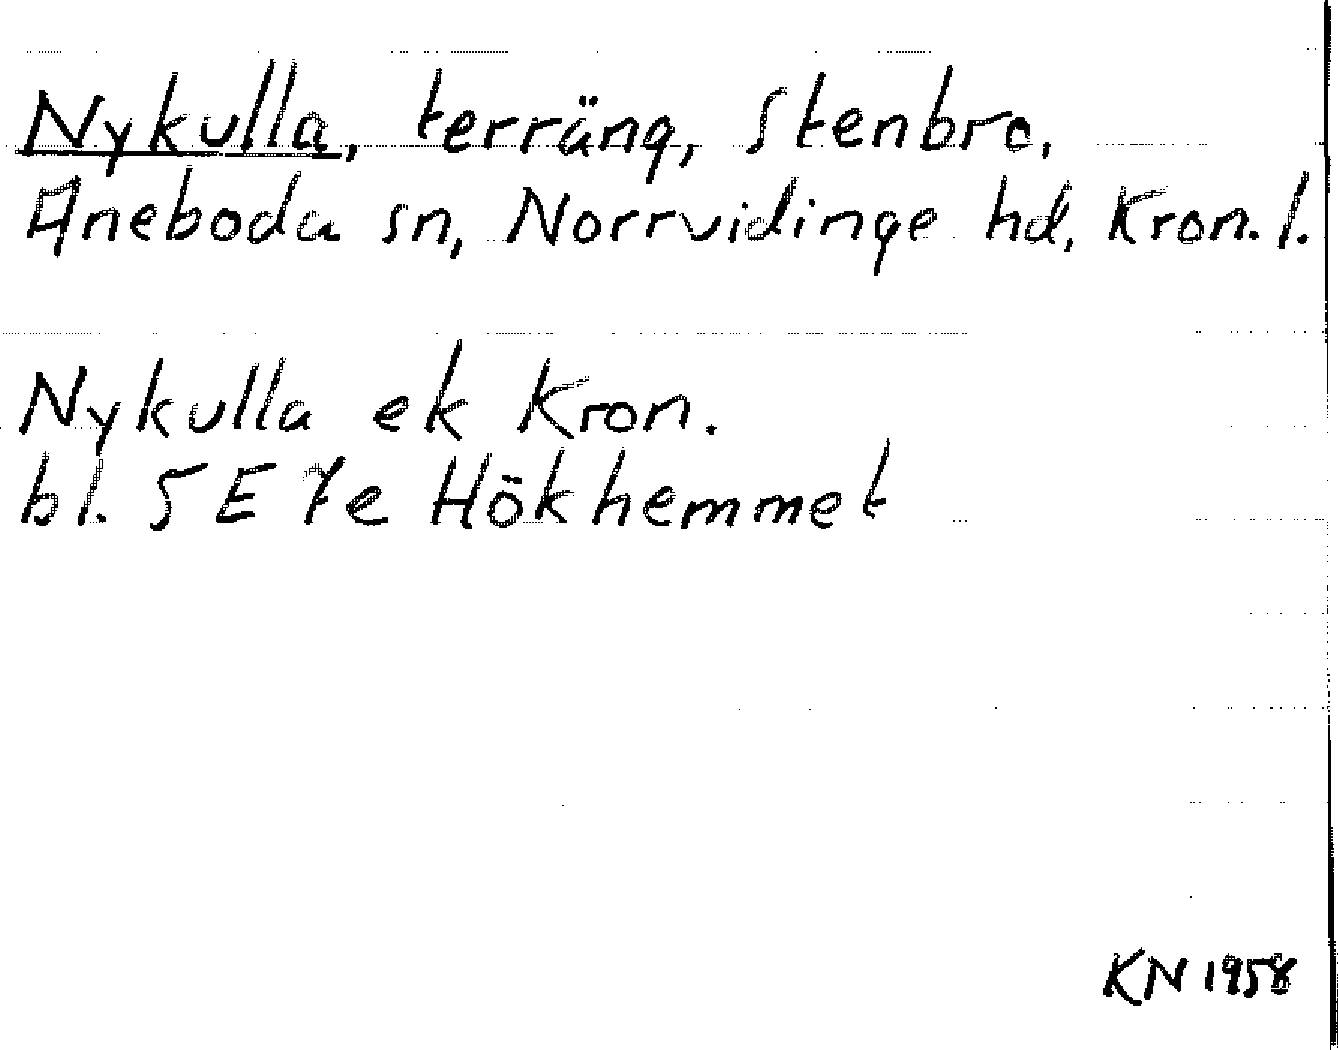 Nykulla, terräng, Stenbro,
Aneboda sn, Norrvidinge hd, Kron. l.
Nykulla ek Kron.
bl. 5 E 7e Hökhemmet
KN 1958